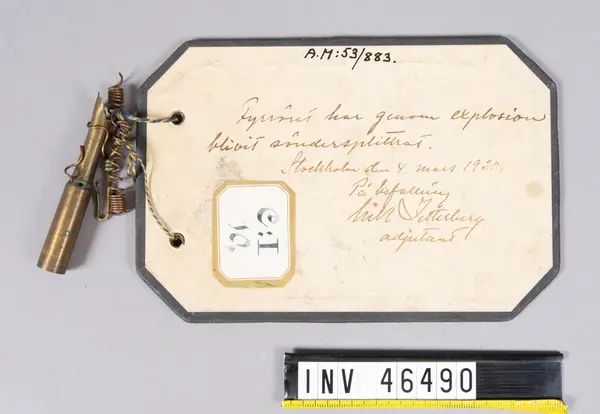 A.M:53/883.
Fyrröret har genom explosion
blivit söndersplittrat.
Stockholm den 4. mars 1920.
På befallning
adjutant
C:I
10.
INV 46490